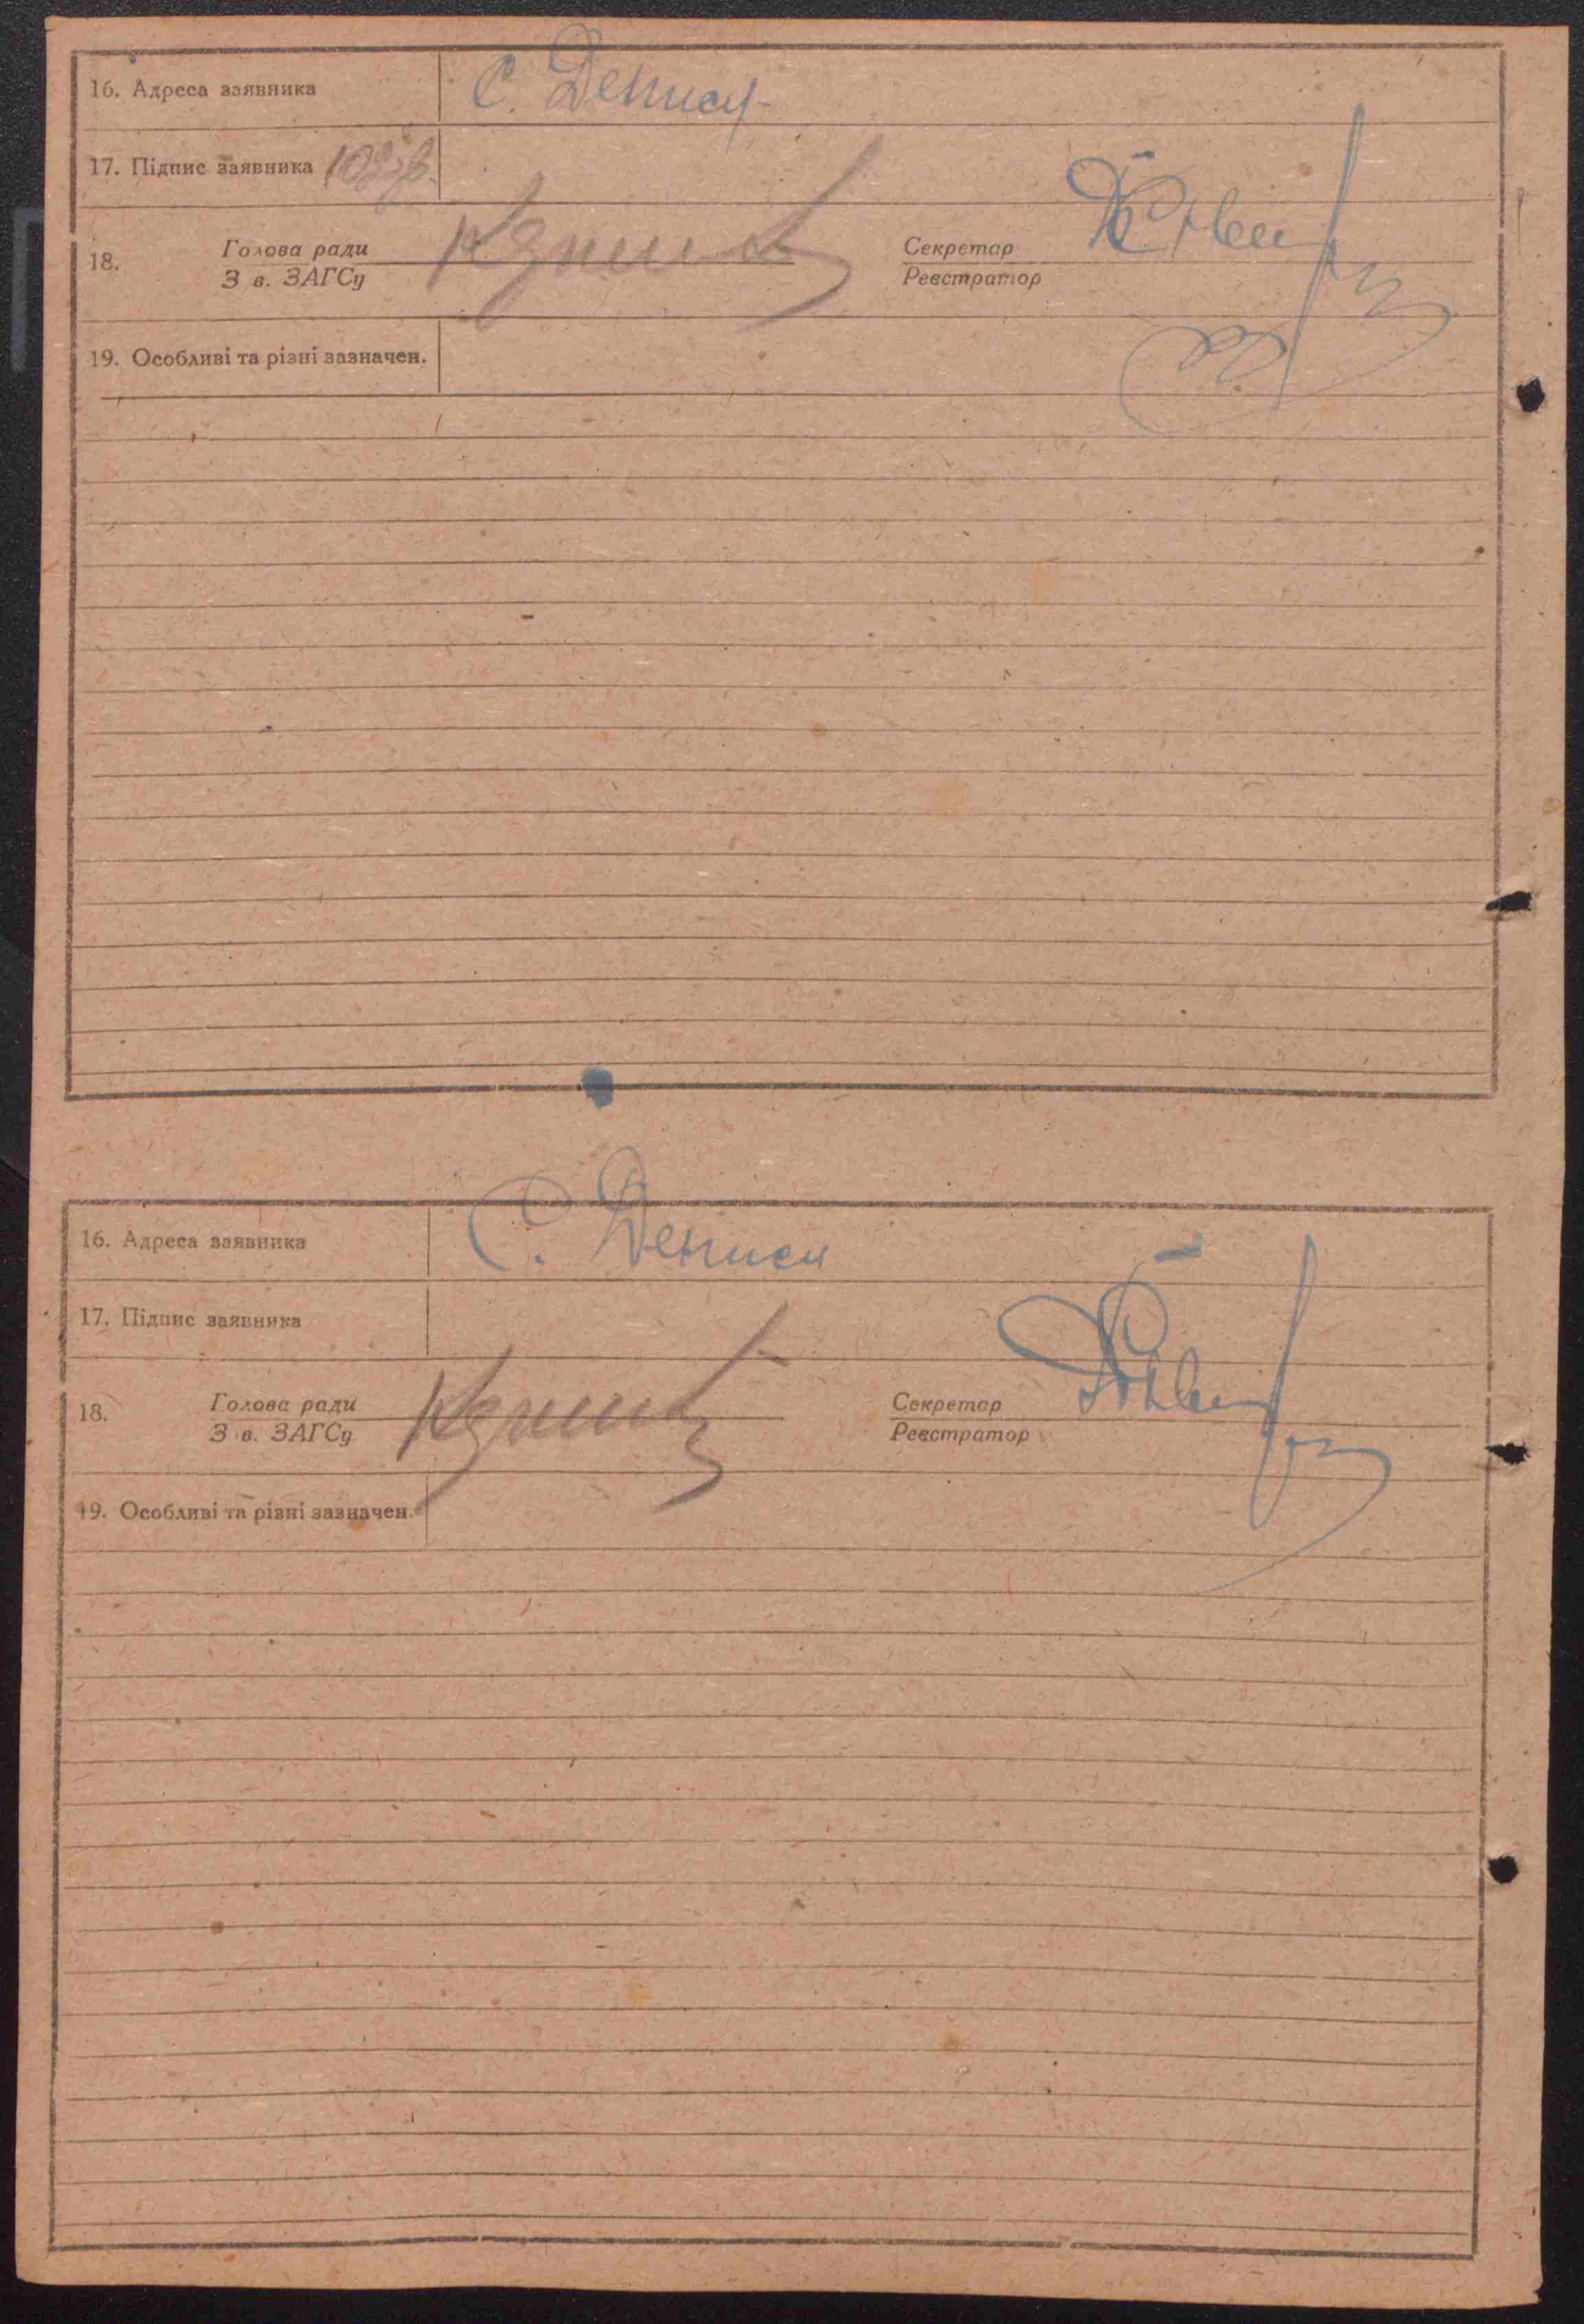 16. Адреса заявника С. Дениси
17. Підпис заявника
18. Голова ради
З в. ЗАГСу
Секретар
Реєстратор
19. Особливі та різні зазначен.
16. Адреса заявника С. Дениси
17. Підпис заявника
18. Голова ради
З в. ЗАГСу
Секретар
Реєстратор
19. Особливі та різні зазначен.